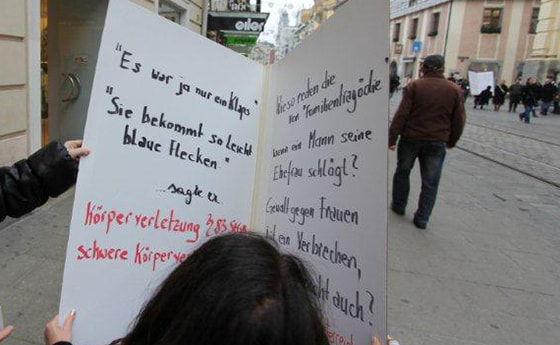 "Es war ja nur ein Klaps"
"Sie bekommt so leicht
blaue Flecken."
...sagte er
Körperverletzung § 83 StGB
schwere Körperver
Wieso reden die
von "Familientragödie"
wenn ein Mann seine
Ehefrau schlägt?
Gewalt gegen Frauen
ein Verbrechen,
auch?